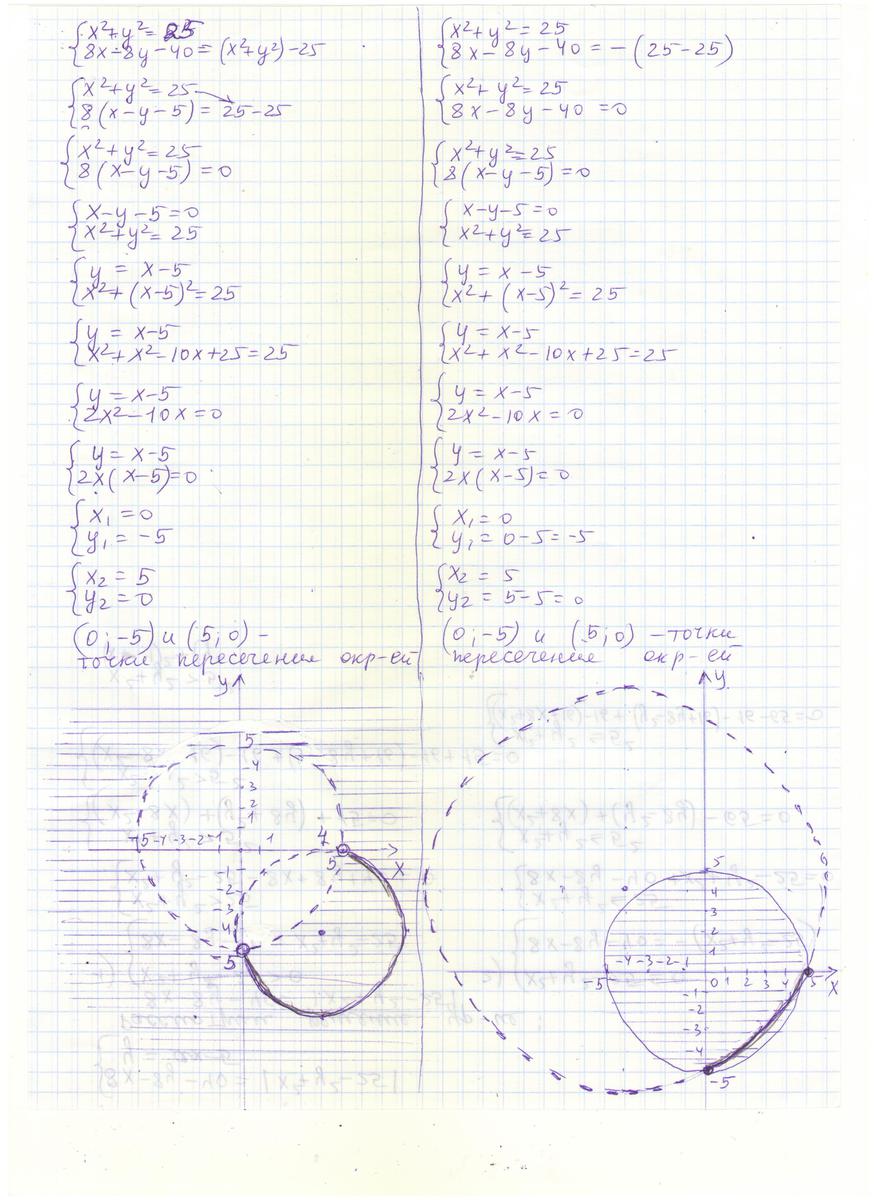 {x²+y²=25
{8x-8y-40=(x²+y²)-25
{x²+y²=25
{8(x-y-5)=25-25
{x²+y²=25
{8(x-y-5)=0
{x-y-5=0
{x²+y²=25
{y=x-5
{x²+(x-5)²=25
{y=x-5
{x²+x²-10x+25=25
{y=x-5
{2x²-10x=0
{y=x-5
{2x(x-5)=0
{x₁=0
{y₁=-5
{x₂=5
{y₂=0
(0;-5) и (5;0) -
точки пересечения окр-ей
y
5
4
3
2
1
-5-4-3-2-1 1
4
5
x
-1
-2
-3
-4
5
{x²+y²=25
{8x-8y-40=-(25-25)
{x²+y²=25
{8x-8y-40=0
{x²+y²=25
{8(x-y-5)=0
{x-y-5=0
{x²+y²=25
{y=x-5
{x²+(x-5)²=25
{y=x-5
{x²+x²-10x+25=25
{y=x-5
{2x²-10x=0
{y=x-5
{2x(x-5)=0
{x₁=0
{y₁=0-5=-5
{x₂=5
{y₂=5-5=0
(0;-5) и (5;0) -точки
пересечения окр-ей
y
5
4
3
2
1
-5 -4-3-2-1
0 1 2 3 4 5 x
-1
-2
-3
-4
-5